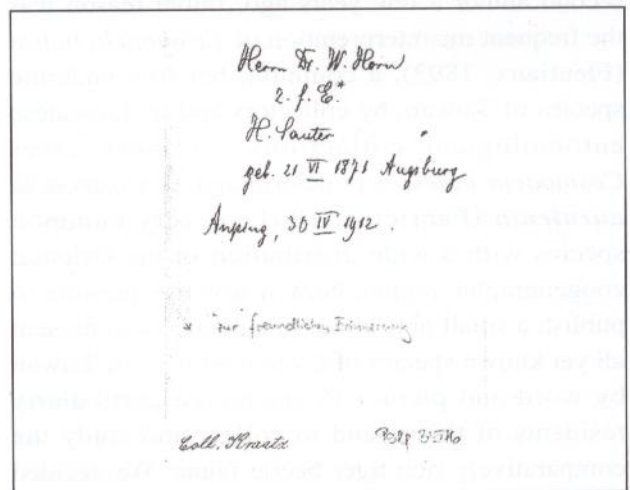 Herrn Dr. W. Horn
z. f. E.*
H. Sauter
geb. 21 VI 1871 Augsburg
Anping, 30 IV 1912.
* zur freundlichen Erinnerung
Coll. Kraatz